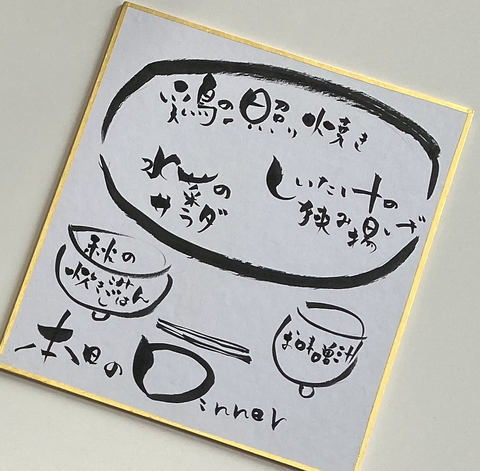 鶏の照り焼き
水菜の
サラダ
しいたけの
挟み揚げ
秋の
炊き込みごはん
お味噌汁
本日の Dinner